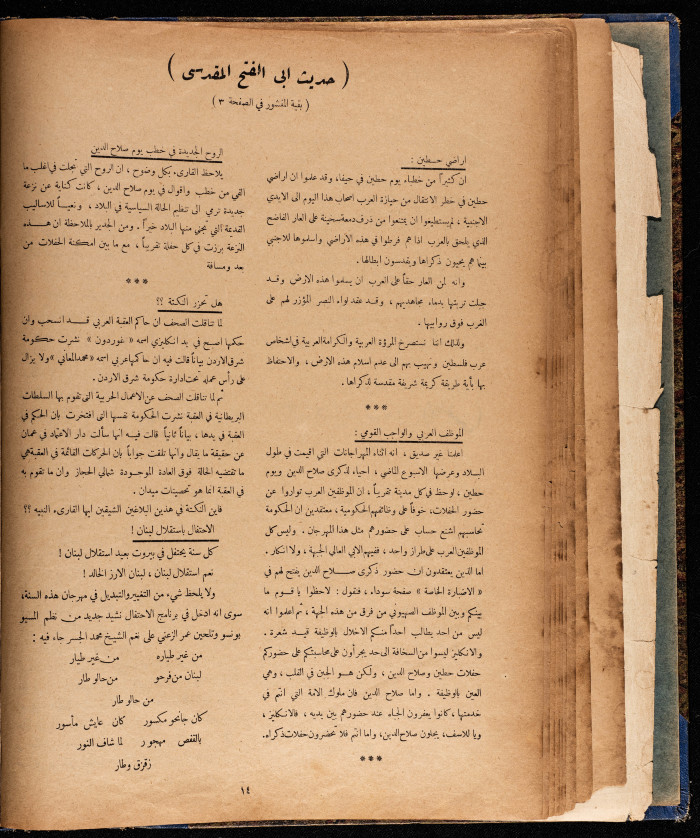 ( حديث ابي الفتح المقدسي )
( بقية المنشور في الصفحة ٣ )
اراضي حطين :
ان كثيراً من خطباء يوم حطين في حيفا، وقد علموا ان اراضي
حطين في خطر الانتقال من حيازة العرب اصحاب هذا اليوم الى الايدي
الاجنبية ، لم يستطيعوا ان يمتنعوا من ذرف دمعة سخينة على العار الفاضح
الذي يلحق بالعرب اذا هم فرطوا في هذه الاراضي واسلموها للاجنبي
بينما هم يحيون ذكراها ويقدسون ابطالها .
وانه لمن العار حقاً على العرب ان يسلموا هذه الارض وقد
جبلت تربتها بدماء مجاهديهم ، وقد عقد لواء النصر المؤزر لهم على
الغرب فوق روابيها .
ولذلك اننا نستصرخ المروءة العربية والكرامة العربية في اشخاص
عرب فلسطين ونهيب بهم الى عدم اسلام هذه الارض ، والاحتفاظ
بها بأية طريقة كريمة شريفة مقدسة لذكراها .
***
الموظف العربي والواجب القومي :
اعلمنا غير صديق ، انه اثناء المهرجانات التي اقيمت في طول
البلاد وعرضها الاسبوع الماضي ، احياء لذكرى صلاح الدين ويوم
حطين ، لوحظ في كل مدينة تقريباً ، ان الموظفين العرب تواروا عن
حضور الحفلات، خوفاً على وظائفهم الحكومية ، معتقدين ان الحكومة
تحاسبهم اشنع حساب على حضورهم مثل هذا المهرجان . وليس كل
الموظفين العرب على طراز واحد ، ففيهم الابي العالي الجبهة ، ولا انكار .
اما الذين يعتقدون ان حضور ذكرى صلاح الدين يفتح لهم في
« الاضبارة الخاصة » صفحة سوداء ، فنقول : لاحظوا يا قوم ما
بينكم وبين الموظف الصهيوني من فرق من هذه الجهة ، ثم اعلموا انه
ليس من احد يطالب احداً منكم الاخلال بالوظيفة قيد شعرة .
والانكليز ليسوا من السخافة الى حد يجرأون على محاسبتكم على حضوركم
حفلات حطين وصلاح الدين ، ولكن هو الجبن في القلب ، وهي
العين بالوظيفة . واما صلاح الدين فان ملوك الامة التي انتم في
خدمتها ، كانوا يعفرون الجباه عند حضورهم بين يديه ، فالانكليز ،
ويا للاسف، يجلون صلاح الدين، واما انتم فلا تحضرون حفلات ذكراه.
***
الروح الجديدة في خطب يوم صلاح الدين
يلاحظ القارىء بكل وضوح ، ان الروح التي تجلت في اغلب ما
القي من خطب واقوال في يوم صلاح الدين ، كانت كناية عن نزعة
جديدة ترمي الى تنظيم الحالة السياسية في البلاد ، ونعياً للاساليب
القديمة التي تجني منها البلاد خيراً . ومن الجدير بالملاحظة ان هذه
النزعة برزت في كل حفلة تقريباً ، مع ما بين امكنة الحفلات من
بعد ومسافة
***
هل تحزر النكتة ؟؟
لما تناقلت الصحف ان حاكم العقبة العربي قد انسحب وان
حكمها اصبح في يد انكليزي اسمه « غوردون » نشرت حكومة
شرق الاردن بياناً قالت فيه ان حاكمها عربي اسمه «محمد المعاني» ولا يزال
على رأس عمله تحت ادارة حكومة شرق الاردن .
ثم لما تناقلت الصحف عن الاعمال الحربية التي تقوم بها السلطات
البريطانية في العقبة نشرت الحكومة نفسها التي افتخرت بان الحكم في
العقبة في يدها ، بياناً ثانياً قالت فيه انها سألت دار الاعتماد في عمان
عن حقيقة ما يقال وانها تلقت جواباً بان الحركات القائمة في العقبة هي
ما تقتضيه الحالة فوق العادة الموجودة شمالي الحجاز وان ما تقوم به
في العقبة انما هو تحصينات ميدان .
فاين النكتة في هذين البلاغين الشيقين ايها القارىء النبيه ؟؟
الاحتفال باستقلال لبنان !
كل سنة يحتفل في بيروت بعيد استقلال لبنان !
نعم استقلال لبنان ، لبنان الارز الخالد !
ولا يلحظ شيء من التغيير والتبديل في مهرجان هذه السنة،
سوى انه ادخل في برنامج الاحتفال نشيد جديد من نظم المسيو
بونسو وتلحين عمر الزعني على نغم الشيخ محمد الجسر جاء فيه :
من غير طياره من غير طيار
لبنان من فرحو من حالو طار
من حالو طار
كان جانحو مكسور كان عايش مأسور
بالقفص مهجور لما شاف النور
زقزق وطار
١٤